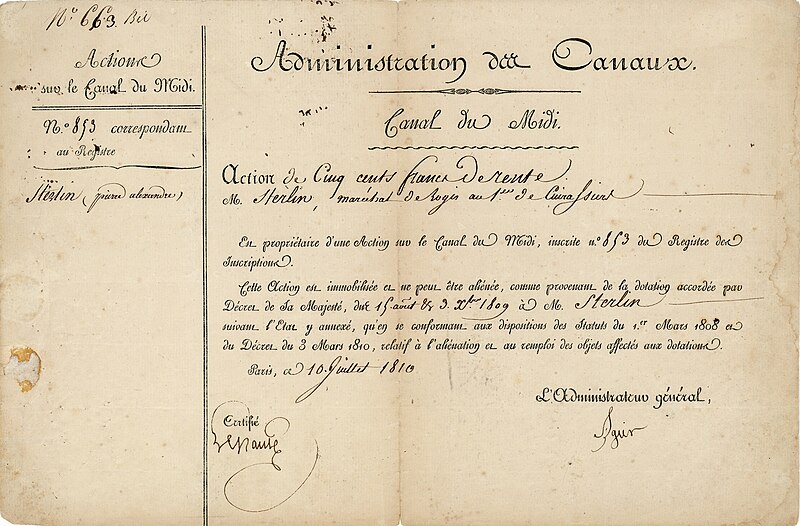 N.º 663. Bis
Actions
sur le Canal du Midi.
N.º 853 correspondant
au Registre
Sterlin (pierre alexandre)
Administration des Canaux.
Canal du Midi.
Action de Cinq cents francs de rente.
M. Sterlin, maréchal de logis au 1.er de Cuirassiers
Est propriétaire d'une Action sur le Canal du Midi, inscrite n.º 853 du Registre des
Inscriptions.
Cette Action est immobilisée et ne peut être aliénée, comme provenant de la dotation accordée par
Décret de Sa Majesté, du 15 août & 3. Xbre 1809 à M. Sterlin
suivant l'Etat y annexé, qu'en se conformant aux dispositions des Statuts du 1.er Mars 1808 et
du Décret du 3 Mars 1810, relatif à l'aliénation et au remploi des objets affectés aux dotations.
Paris, ce 10 Juillet 1810
L'Administrateur général,
Certifié